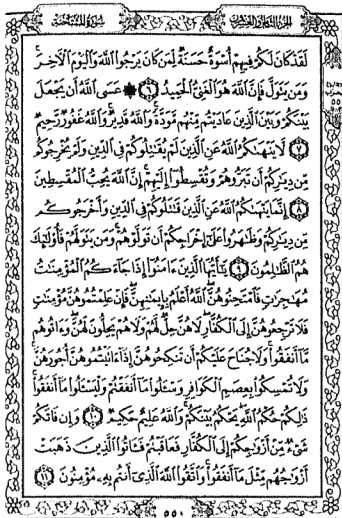 الجزء الثامن والعشرون
سورة الممتحنة
لَقَدْ كَانَ لَكُمْ فِيهِمْ أُسْوَةٌ حَسَنَةٌ لِّمَن كَانَ يَرْجُوا۟ ٱللَّهَ وَٱلْيَوْمَ ٱلْءَاخِرَ ۚ
وَمَن يَتَوَلَّ فَإِنَّ ٱللَّهَ هُوَ ٱلْغَنِىُّ ٱلْحَمِيدُ ٦ ۞ عَسَى ٱللَّهُ أَن يَجْعَلَ
بَيْنَكُمْ وَبَيْنَ ٱلَّذِينَ عَادَيْتُم مِّنْهُم مَّوَدَّةً ۚ وَٱللَّهُ قَدِيرٌ ۚ وَٱللَّهُ غَفُورٌ رَّحِيمٌ
٧ لَّا يَنْهَىٰكُمُ ٱللَّهُ عَنِ ٱلَّذِينَ لَمْ يُقَـٰتِلُوكُمْ فِى ٱلدِّينِ وَلَمْ يُخْرِجُوكُم
مِّن دِيَـٰرِكُمْ أَن تَبَرُّوهُمْ وَتُقْسِطُوٓا۟ إِلَيْهِمْ ۚ إِنَّ ٱللَّهَ يُحِبُّ ٱلْمُقْسِطِينَ
٨ إِنَّمَا يَنْهَىٰكُمُ ٱللَّهُ عَنِ ٱلَّذِينَ قَـٰتَلُوكُمْ فِى ٱلدِّينِ وَأَخْرَجُوكُم
مِّن دِيَـٰرِكُمْ وَظَـٰهَرُوا۟ عَلَىٰٓ إِخْرَاجِكُمْ أَن تَوَلَّوْهُمْ ۚ وَمَن يَتَوَلَّهُمْ فَأُو۟لَـٰٓئِكَ
هُمُ ٱلظَّـٰلِمُونَ ٩ يَـٰٓأَيُّهَا ٱلَّذِينَ ءَامَنُوٓا۟ إِذَا جَآءَكُمُ ٱلْمُؤْمِنَـٰتُ
مُهَـٰجِرَٰتٍ فَٱمْتَحِنُوهُنَّ ۖ ٱللَّهُ أَعْلَمُ بِإِيمَـٰنِهِنَّ ۖ فَإِنْ عَلِمْتُمُوهُنَّ مُؤْمِنَـٰتٍ
فَلَا تَرْجِعُوهُنَّ إِلَى ٱلْكُفَّارِ ۖ لَا هُنَّ حِلٌّ لَّهُمْ وَلَا هُمْ يَحِلُّونَ لَهُنَّ ۖ وَءَاتُوهُم
مَّآ أَنفَقُوا۟ ۚ وَلَا جُنَاحَ عَلَيْكُمْ أَن تَنكِحُوهُنَّ إِذَآ ءَاتَيْتُمُوهُنَّ أُجُورَهُنَّ ۚ
وَلَا تُمْسِكُوا۟ بِعِصَمِ ٱلْكَوَافِرِ وَسْـَٔلُوا۟ مَآ أَنفَقْتُمْ وَلْيَسْـَٔلُوا۟ مَآ أَنفَقُوا۟ ۚ
ذَٰلِكُمْ حُكْمُ ٱللَّهِ ۖ يَحْكُمُ بَيْنَكُمْ ۚ وَٱللَّهُ عَلِيمٌ حَكِيمٌ ١٠ وَإِن فَاتَكُمْ
شَىْءٌ مِّنْ أَزْوَٰجِكُمْ إِلَى ٱلْكُفَّارِ فَعَاقَبْتُمْ فَـَٔاتُوا۟ ٱلَّذِينَ ذَهَبَتْ
أَزْوَٰجُهُم مِّثْلَ مَآ أَنفَقُوا۟ ۚ وَٱتَّقُوا۟ ٱللَّهَ ٱلَّذِىٓ أَنتُم بِهِۦ مُؤْمِنُونَ ١١
٥٥٠